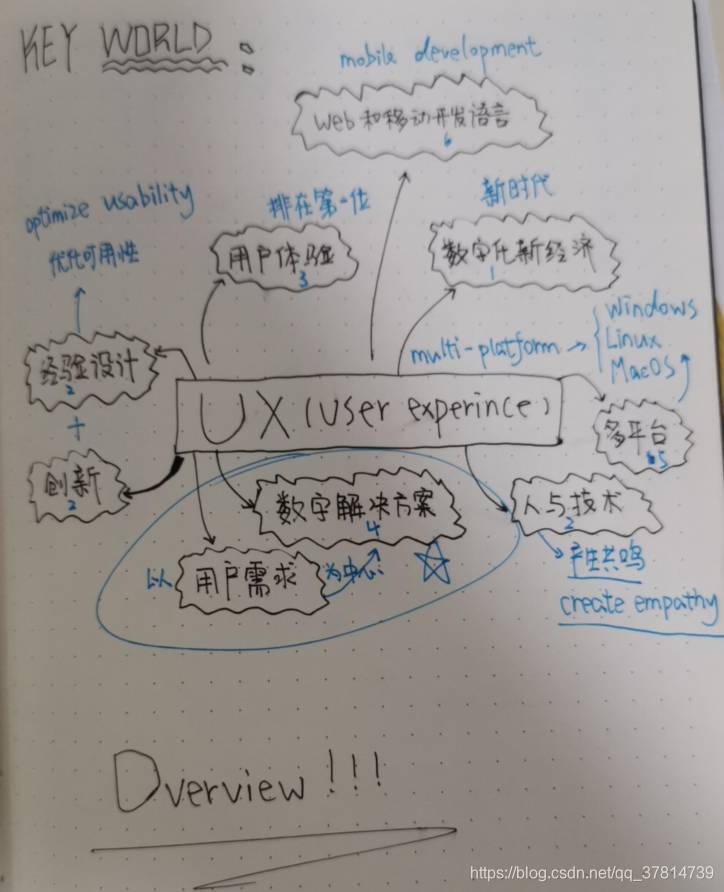 KEY WORLD :
mobile development
web和移动开发语言
6
optimize usability
优化可用性
排在第一位
用户体验
3
新时代
数字化新经济
1
multi-platform →
Windows
Linux
MacOS
经验设计
2
+
创新
2
UX (User experince)
多平台
5
数字解决方案
4
人与技术
2
以
用户需求
为中心
产生共鸣
create empathy
Overview !!!
https://blog.csdn.net/qq_37814739